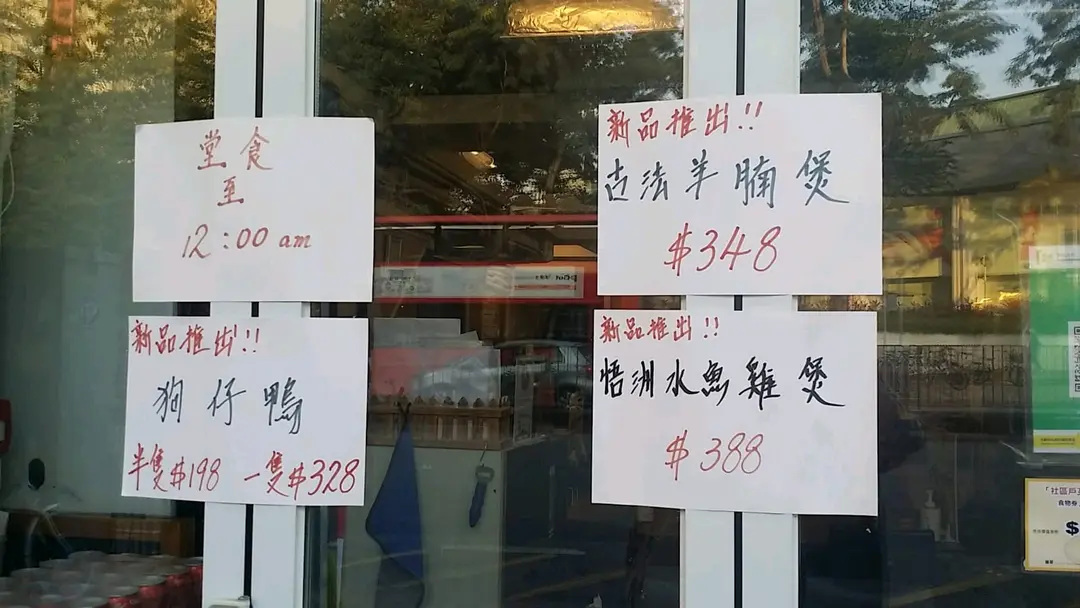 堂食
至
12:00 am
新品推出!!
古法羊腩煲
$348
新品推出!!
狗仔鴨
半隻$198 一隻$328
新品推出!!
梧洲水魚雞煲
$388
「社區戶
$